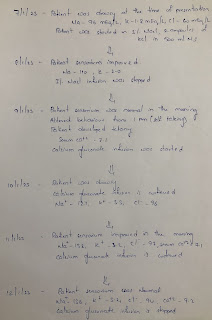 7/1/23 - Patient was drowsy at the time of presentation
Na - 96 meq/L, K - 1.8 meq/L, Cl - 60 meq/L
Patient was started on 3% Nacl, 2 ampoules of
kcl in 500 ml NS
8/1/23 - Patient sensorium improved
Na - 110, K - 2.0
3% Nacl infusion was stopped
9/1/23 - Patient sensorium was normal in the morning
Altered behaviour from 1 pm
Patient developed tetany
Serum ca+2 - 7.1
calcium gluconate infusion was started
10/1/23 - Patient was drowsy
calcium gluconate infusion is continued
Na+ - 127, K+ - 3.2, Cl- - 96
11/1/23 - Patient sensorium improved in the morning
Na+ - 132, K+ - 3.2, Cl- - 97, serum ca+2
calcium gluconate infusion is continued
12/1/23 - Patient sensorium was normal
Na+ - K+ - Cl- - Ca+2 -
calcium gluconate infusion is stopped